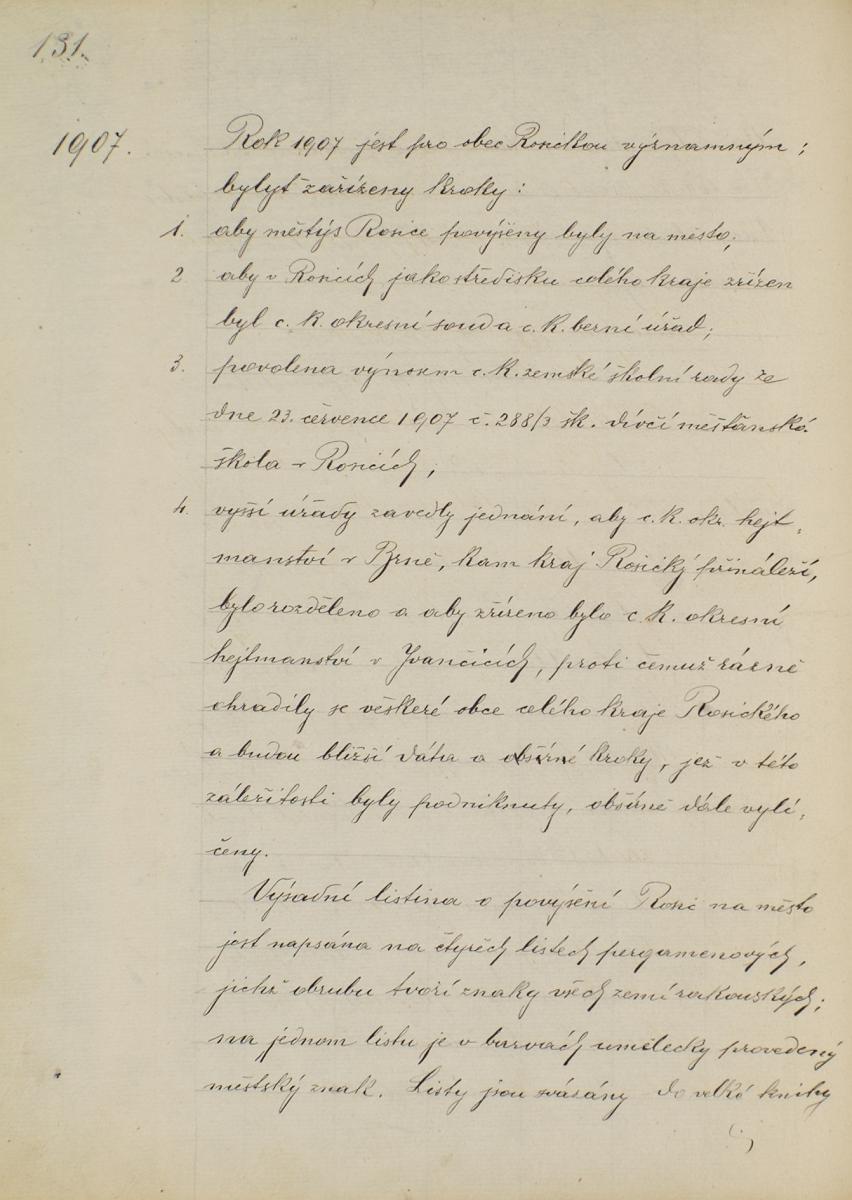 131.
1907.
Rok 1907 jest pro obec Rosickou významným;
bylyť zařízeny kroky:
1. aby městýs Rosice povýšeny byly na město;
2 aby v Rosicích jako středisku celého kraje zřízen
byl c. k. okresní soud a c. k. berní úřad;
3. povolena výnosem c. k. zemské školní rady ze
dne 23. července 1907 č. 288/3 šk. dívčí měšťanská
škola v Rosicích;
4. vyšší úřady zavedly jednání, aby c. k. okr. hejt-
manství v Brně, kam kraj Rosický přináleží,
bylo rozděleno a aby zřízeno bylo c. k. okresní
hejtmanství v Ivančicích, proti čemuž rázně
ohradily se veškeré obce celého kraje Rosického
a budou bližší dáta a kroky, jež v této
záležitosti byly podniknuty, obšírně dále vylí-
čeny.
Výsadní listina o povýšení Rosic na město
jest napsána na čtyrech listech pergamenových,
jichž obrubu tvoří znaky všech zemí rakouských;
na jednom listu je v barvách umělecky provedený
městský znak. Listy jsou svázány do velké knihy